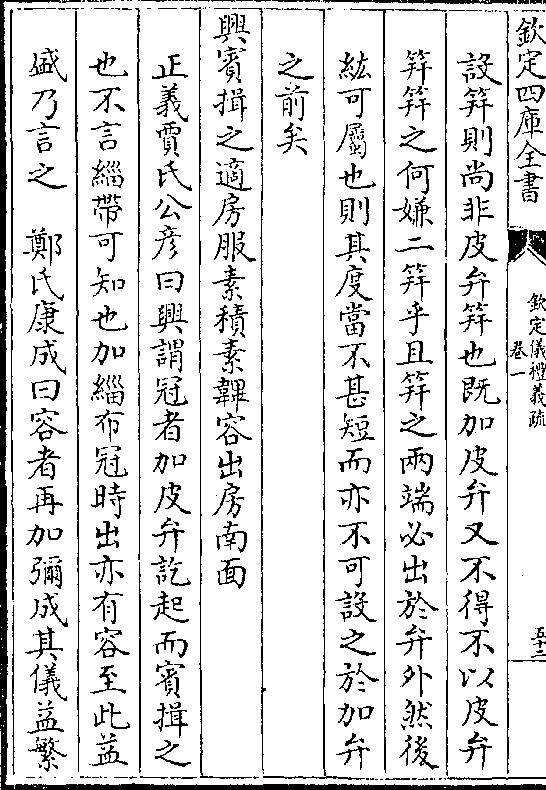 欽定四庫全書
欽定儀禮義疏
卷一
五十二
設筓則尚非皮弁筓也既加皮弁又不得不以皮弁
筓筓之何嫌二筓乎且筓之兩端必出於弁外然後
紘可屬也則其度當不甚短而亦不可設之於加弁
之前矣
興賓揖之適房服素積素韠容出房南面
正義賈氏公彦曰興謂冠者加皮弁訖起而賓揖之
也不言緇帶可知也加緇布冠時出亦有容至此益
盛乃言之　鄭氏康成曰容者再加彌成其儀益繁